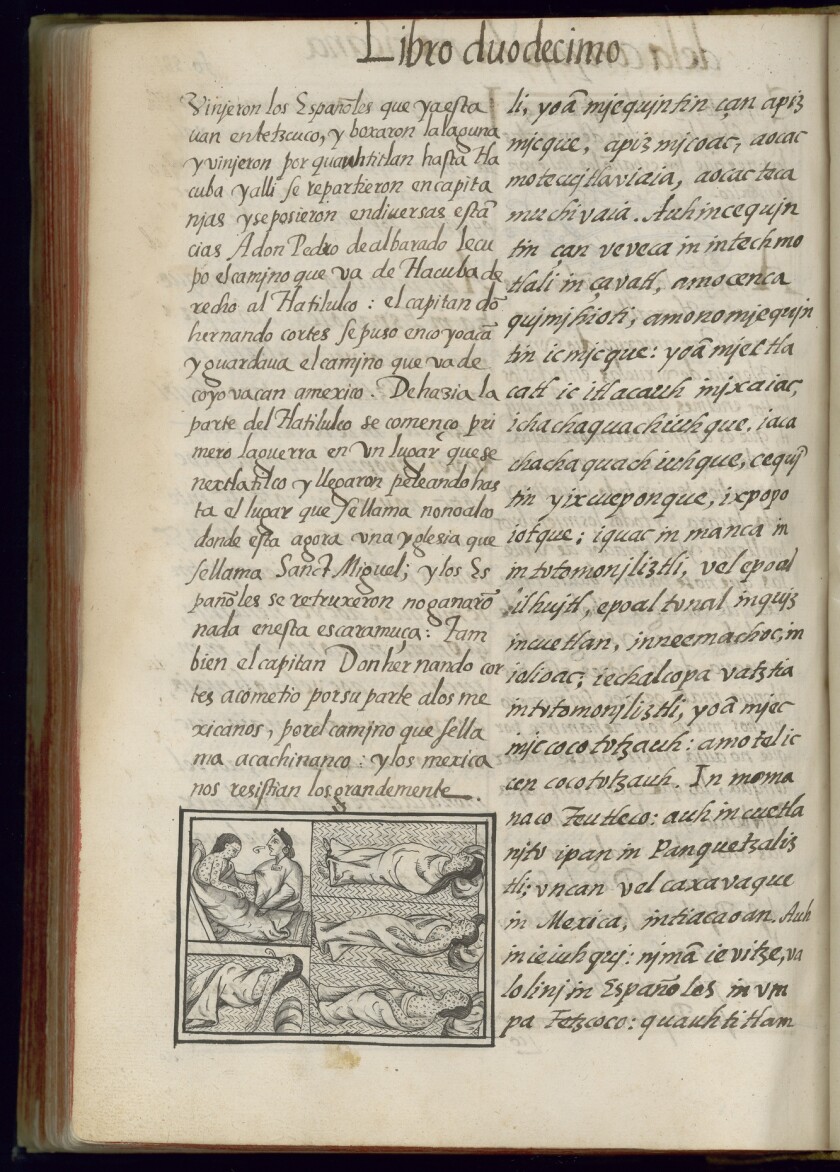 Libro duodecimo
Vinjeron los Españoles que ya esta
uan en tetzcuco, y boxaron la laguna
y vinjeron por quauhtitlan hasta tla
cuba y alli se repartieron en capita
njas y se posieron en diuersas estā
cias A don Pedro de albarado le cu
po el camino que va de tlacuba de
recho al tlatilulco : el capitan dō
hernando cortes se puso en coyoacā
y guardaua el camino que va de
coyovacan a mexico . De hazia la
parte del tlatilulco se començo pri
mero la guerra en vn lugar que se
nextlatilco y llegaron peleando has
ta el lugar que se llama nonoalco
donde esta agora vna yglesia que
se llama Sanct Miguel; y los Es
pañoles se retruxeron no ganarō
nada en esta escaramuça : Tam
bien el capitan Don hernando cor
tes acometio por su parte a los me
xicanos, por el camjno que se lla
ma acachinanco : y los mexica
nos resistian los grandemente .
li, yoā mjequjntin çan apiz
mjcque, apizmjcoac, aocac
motecujtlaviaia, aocac teca
muchivaia. Auh in cequjn
tin çan veveca in intech mo
tlali in çavatl, amo cenca
qujmjhioti, amo no mjequjn
tin ic mjcque: yoā mjec tla
catl ic itlacauh in jxaiac,
ichachaquachiuhque, iaca
chachaquachiuhque, cequj
tin yixcueponque, ixpopo
iotque: iquac in manca in
in totomonjliztli, vel epoal
ilhujtl, epoal tonal in quiz
in cuetlan, in neemachoc, in
iolioac; ie chalcopa vatztia
in totomonjliztli, yoā mjec
injc cocototzauh: amo tel ic
cen cocototzauh. In moma
naco Teutleco: auh in cuetla
njto ipan in Panquetzaliz
tli; vncan vel caxavaque
in Mexica, in tiacaoan. Auh
in ie iuh quj: njmā ie vitze, va
lolinj in Españoles in vm
pa Tetzcoco: quauhtitlam